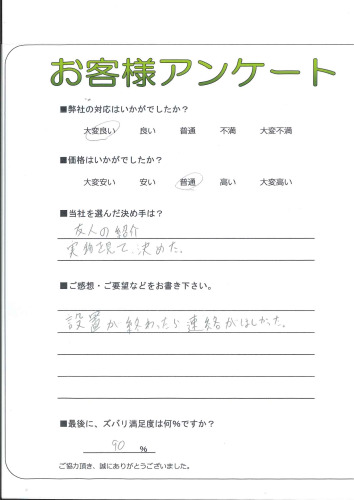 お客様アンケート
■弊社の対応はいかがでしたか?
大変良い 良い 普通 不満 大変不満
■価格はいかがでしたか?
大変安い 安い 普通 高い 大変高い
■当社を選んだ決め手は?
友人の紹介
実物を見て、決めた。
■ご感想・ご要望などをお書き下さい。
設置が終わったら連絡がほしかった。
■最後に、ズバリ満足度は何%ですか?
90 %
ご協力頂き、誠にありがとうございました。